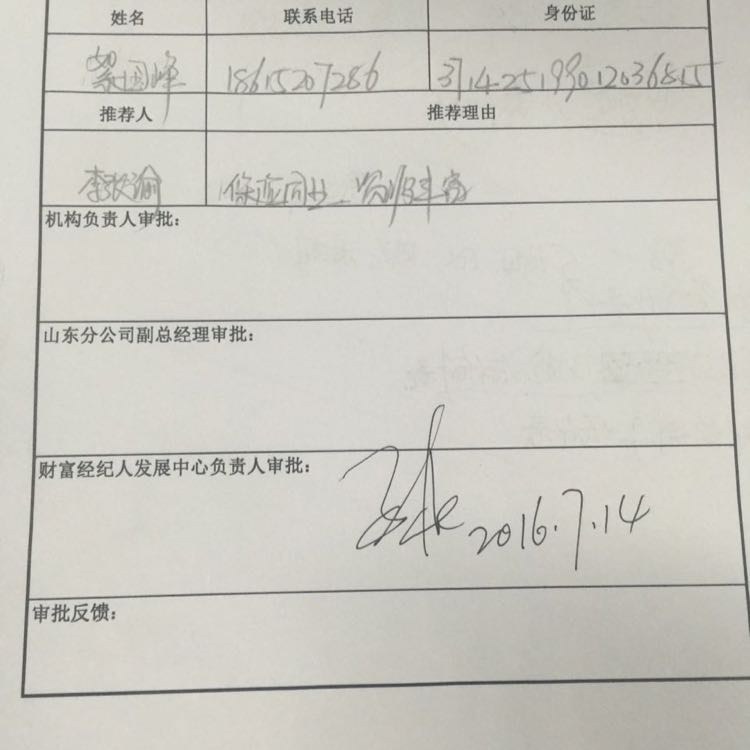 姓名 联系电话 身份证
国峰 18615207286 371425199012036815
推荐人 推荐理由
李 保险同业、资源丰富
机构负责人审批:
山东分公司副总经理审批:
财富经纪人发展中心负责人审批:
2016.7.14
审批反馈: